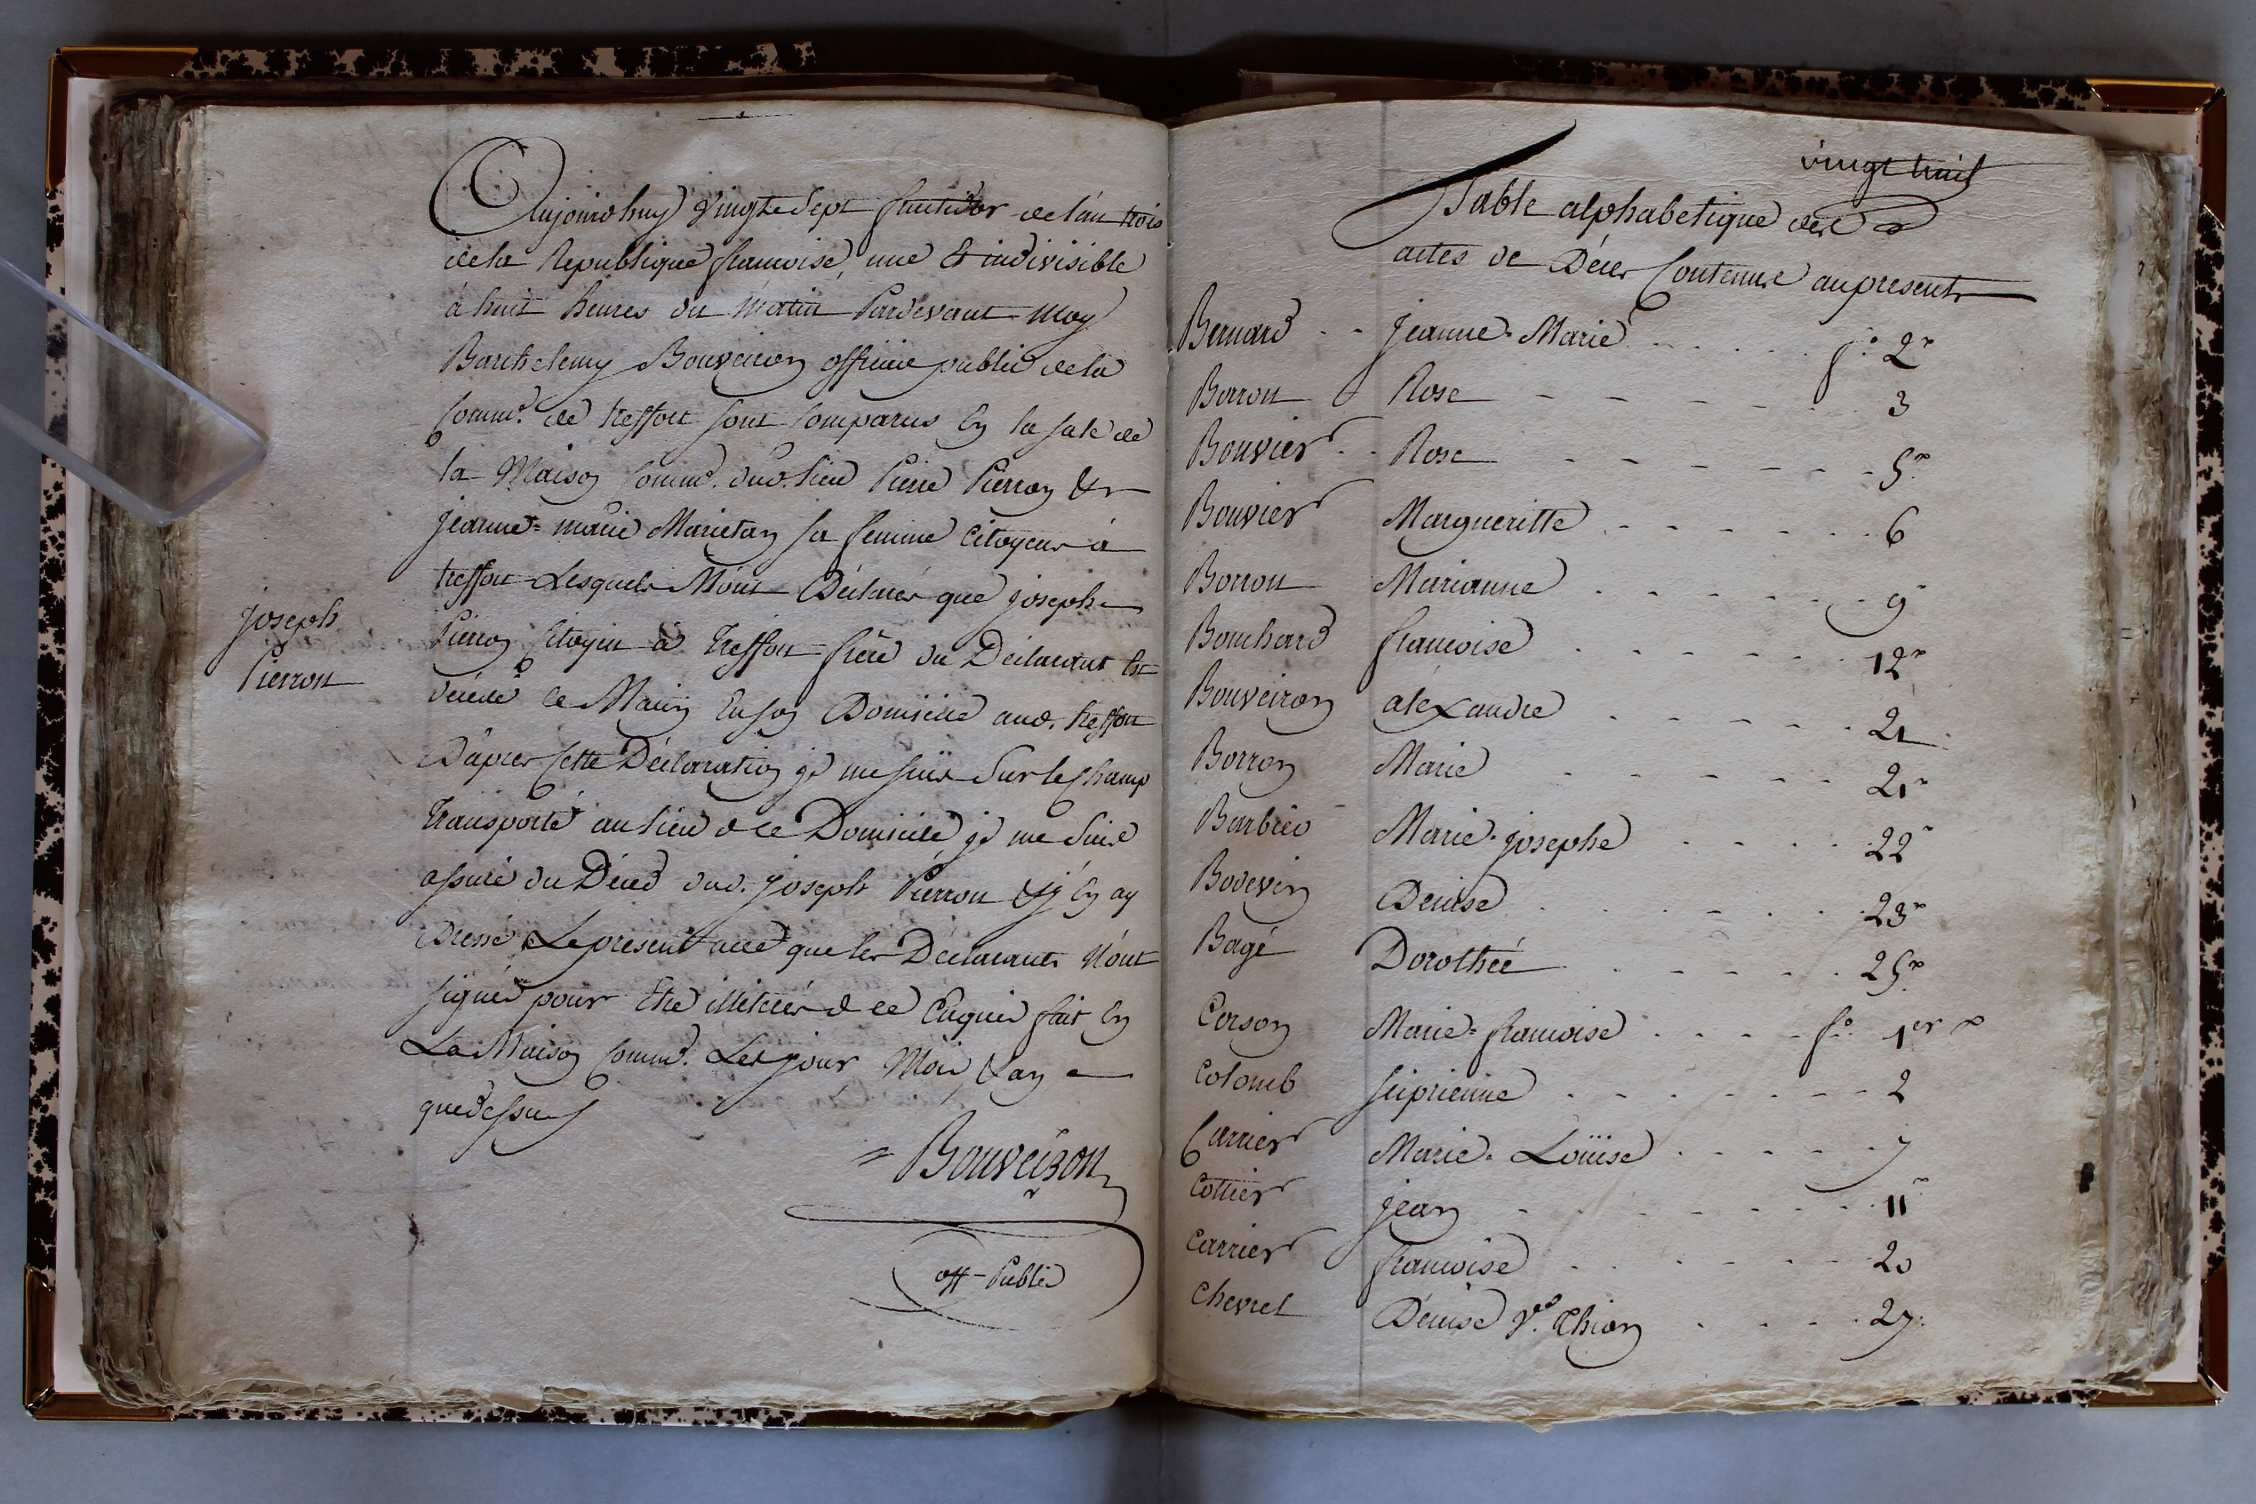 Aujourd'huy vingte sept fructidor de l'an trois
de la Republique francoise, une & indivisible
à huit heures du matin Pardevant moy
Barthelemy Bouveiron officier public de la
Comm.e de treffort sont comparus En la sale de
la Maison Comm.e dud. lieu Pierre Pierron &
jeanne=marie Marietan sa femme citoyens à
treffort Lesquels M'ont Déclarés que joseph
Pierron Citoyen à Treffort frère du Déclarant Est
décédé ce Matin En son Domicile aud. treffort
D'après Cette Déclaration je me suis Sur le Champ
Transporté au lieu de ce Domicile je me suis
assuré du Décès dud. joseph Pierron & j'En ay
Dressé Le present acte que les Déclarants N'ont
signés pour Etre illitérés de ce Enquis fait En
La Maison Comm.e Les jour Mois & an
que dessus
joseph
Pierron
= Bouveiron
off-Public
vingt huit
Table alphabetique des
actes de Décès Contenus au present
Bernard - - Jeanne-Marie . . . . f.o 2
Borron Rose - - - - - 3
Bouvier - - Rose - - - - - 5
Bouvier Margueritte - - - - - 6
Borron Marianne . . . . . 9
Bouchard francoise . . . . . 12
Bouveiron alexandre . . . . . 21
Borron Marie - - - - - 21
Barbier Marie-josephe . . . . 22
Bodevin Denise . . . . . 23
Bagé Dorothée . . . . . 25
Corson Marie=francoise . . . . f.o 1er
Colomb suprienne . . . . . 2
Carrier Marie-Loüise . . . . . 7
Cottier jean - - - - - 11
Carrier francoise . . . . . 20
Chevret Dénise v.e Thion . . . . 27.